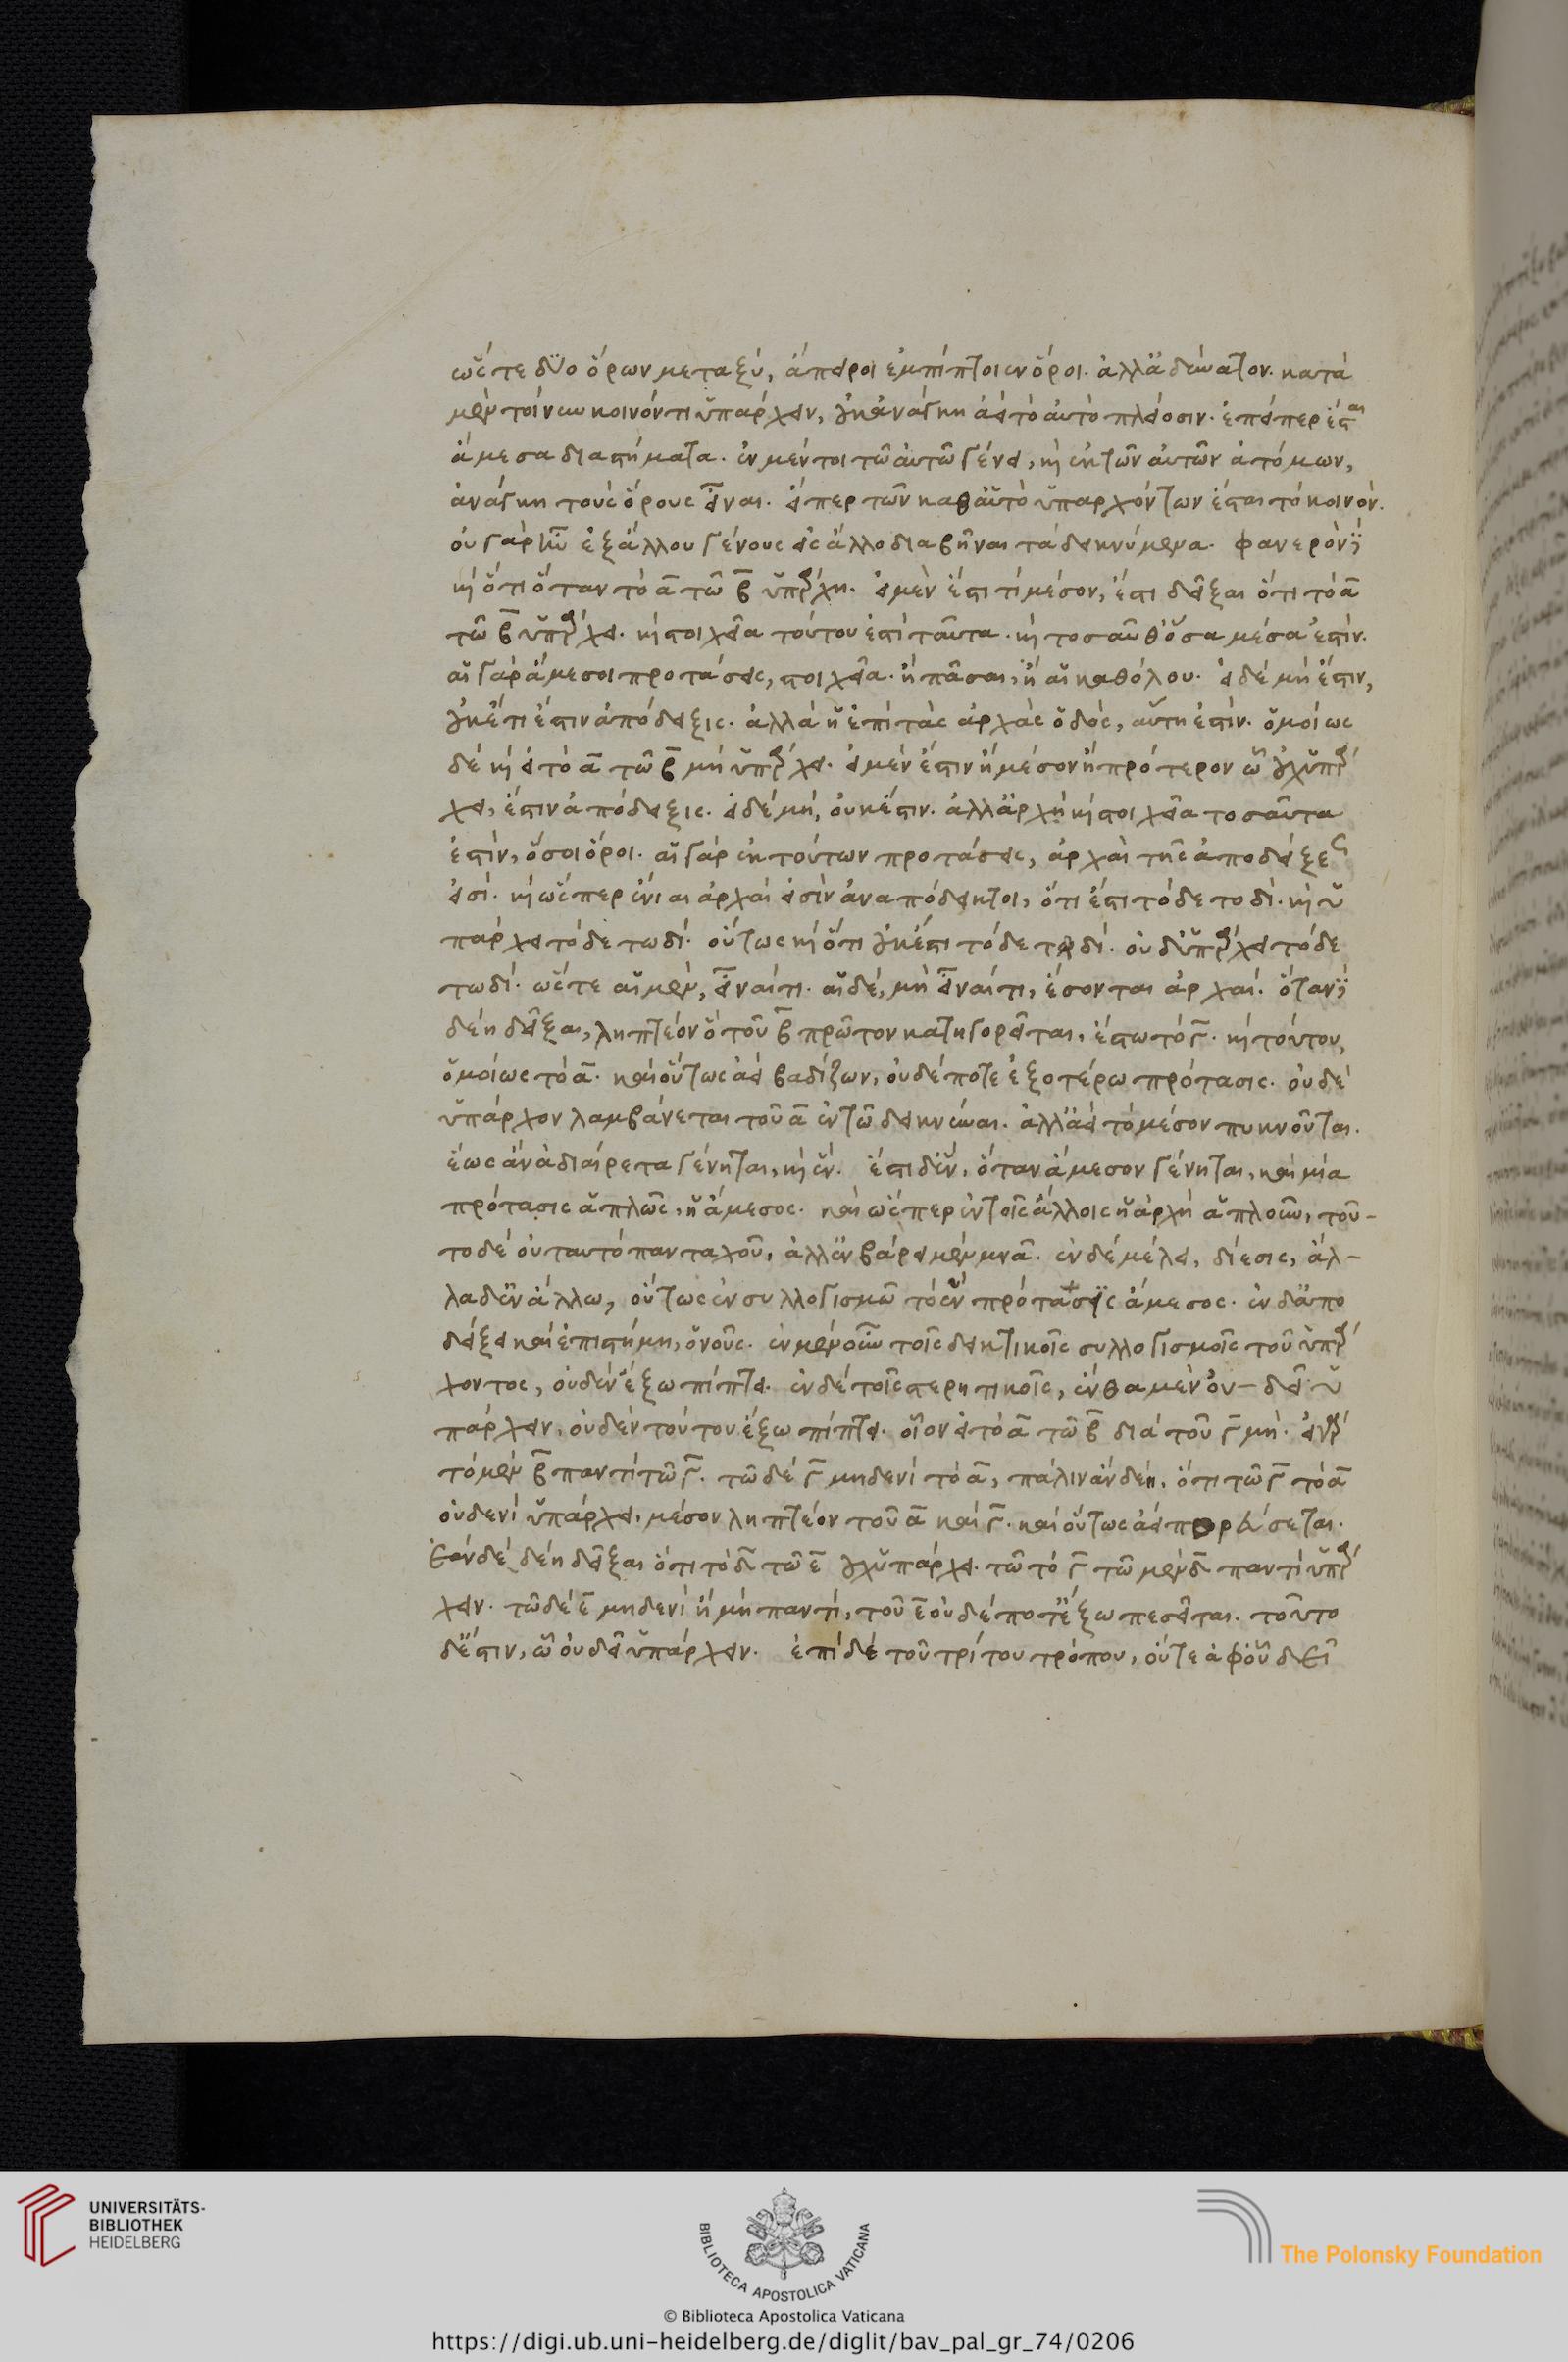 ὥστε δύο ὅρων μεταξύ, ἄπειροι ἐμπίπτοιεν ὅροι. ἀλλ' ἀδύνατον. κατὰ
μὲν τοίνυν κοινόν τι ὑπάρχειν, οὐκ ἀνάγκη ἀεὶ τὸ αὐτὸ πλείοσιν. ἐπείπερ ἔσται
ἄμεσα διαστήματα. ἐν μέντοι τῶ αὐτῶ γένει, κὶ ἐκ τῶν αὐτῶν ἀτόμων,
ἀνάγκη τοὺς ὅρους εἶναι. εἴπερ τῶν καθ' αὑτὸ ὑπαρχόντων ἔσται τὸ κοινόν.
οὐ γὰρ ἦν ἐξ ἄλλου γένους εἰς ἄλλο διαβῆναι τὰ δεικνύμενα. φανερὸν δὲ
κὶ ὅτι ὅταν τὸ α τῶ β ὑπάρχη. εἰ μὲν ἔστι τι μέσον, ἔστι δεῖξαι ὅτι τὸ α
τῶ β ὑπάρχει. κὶ στοιχεῖα τούτου ἐστὶ ταῦτα. κὶ τοσαῦθ' ὅσα μέσα ἐστίν.
αἱ γὰρ ἄμεσοι προτάσεις, στοιχεῖα. ἢ πᾶσαι, ἢ αἱ καθόλου. εἰ δὲ μὴ ἔστιν,
οὐκέτι ἔστιν ἀπόδειξις. ἀλλὰ ἡ ἐπὶ τὰς ἀρχὰς ὁδὸς, αὕτη ἐστίν. ὁμοίως
δὲ κὶ εἰ τὸ α τῶ β μὴ ὑπάρχει. εἰ μὲν ἔστιν ἢ μέσον ἢ πρότερον ὧ οὐχ ὑπάρ
χει, ἔστιν ἀπόδειξις. εἰ δὲ μή, οὐκ ἔστιν. ἀλλ' ἀρχὴ κὶ στοιχεῖα τοσαῦτα
ἐστὶν, ὅσοι ὅροι. αἱ γὰρ ἐκ τούτων προτάσεις, ἀρχαὶ τῆς ἀποδείξεως
εἰσί. κὶ ὥσπερ ἔνιαι ἀρχαὶ εἰσὶν ἀναπόδεικτοι, ὅτι ἐστὶ τόδε τοδὶ. κὶ ὑ
πάρχει τόδε τωδί. οὕτως κὶ ὅτι οὐκ ἔστι τόδε τωδί. οὐδ' ὑπάρχει τόδε
τωδί. ὥστε αἱ μὲν, εἶναί τι. αἱ δέ, μὴ εἶναί τι, ἔσονται ἀρχαί. ὅταν δὲ
δέη δεῖξαι, ληπτέον ὃ τοῦ β πρῶτον κατηγορεῖται, ἔστω τὸ γ. κὶ τούτου,
ὁμοίως τὸ α. καὶ οὕτως ἀεὶ βαδίζων, οὐδέποτε ἐξοτέρω πρότασις. οὐδὲ
ὑπάρχον λαμβάνεται τοῦ α ἐν τῶ δεικνύναι. ἀλλ' ἀεὶ τὸ μέσον πυκνοῦται.
ἕως ἂν ἀδιαίρετα γένηται, κὶ ἕν. ἔστι δ' ἕν, ὅταν ἄμεσον γένηται, καὶ μία
πρότασις ἁπλῶς, ἡ ἄμεσος. καὶ ὥσπερ ἐν τοῖς ἄλλοις ἡ ἀρχὴ ἁπλοῦν, τοῦ-
το δὲ οὐ ταυτὸ πανταχοῦ, ἀλλ' ἐν βάρει μὲν μνᾶ. ἐν δὲ μέλει, δίεσις, ἄλ-
λα δ' ἐν ἄλλω, οὕτως ἐν συλλογισμῶ τὸ ἓν πρότασις ἄμεσος. ἐν δ' ἀπο
δείξει καὶ ἐπιστήμη, ὁ νοῦς. ἐν μὲν οὖν τοῖς δεικτικοῖς συλλογισμοῖς τοῦ ὑπάρ
χοντος, οὐδὲν ἔξω πίπτει. ἐν δὲ τοῖς στερητικοῖς, ἔνθα μὲν ὃν- δεῖ ὑ
πάρχειν, οὐδὲν τούτου ἔξω πίπτει. οἷον εἰ τὸ α τῶ β διὰ τοῦ γ μή. εἰ γὰρ
τὸ μὲν β παντὶ τῶ γ. τῶ δὲ γ μηδενὶ τὸ α, πάλιν ἂν δέη, ὅτι τῶ γ τὸ α
οὐδενὶ ὑπάρχει, μέσον ληπτέον τοῦ α καὶ γ. καὶ οὕτως ἀεὶ πορεύσεται.
Ἐὰν δὲ δέη δεῖξαι ὅτι τὸ δ τῶ ε οὐχ ὑπάρχει. τῶ τὸ γ τῶ μὲν δ παντὶ ὑπάρ
χειν. τῶ δὲ ε μηδενὶ ἢ μὴ παντί, τοῦ ε οὐδέποτ' ἔξω πεσεῖται. τοῦτο
δ' ἐστιν, ὧ οὐ δεῖ ὑπάρχειν. ἐπὶ δὲ τοῦ τρίτου τρόπου, οὔτε ἀφ' οὗ δεῖ
UNIVERSITÄTS-
BIBLIOTHEK
HEIDELBERG
BIBLIOTECA APOSTOLICA VATICANA
The Polonsky Foundation
© Biblioteca Apostolica Vaticana
https://digi.ub.uni-heidelberg.de/diglit/bav_pal_gr_74/0206